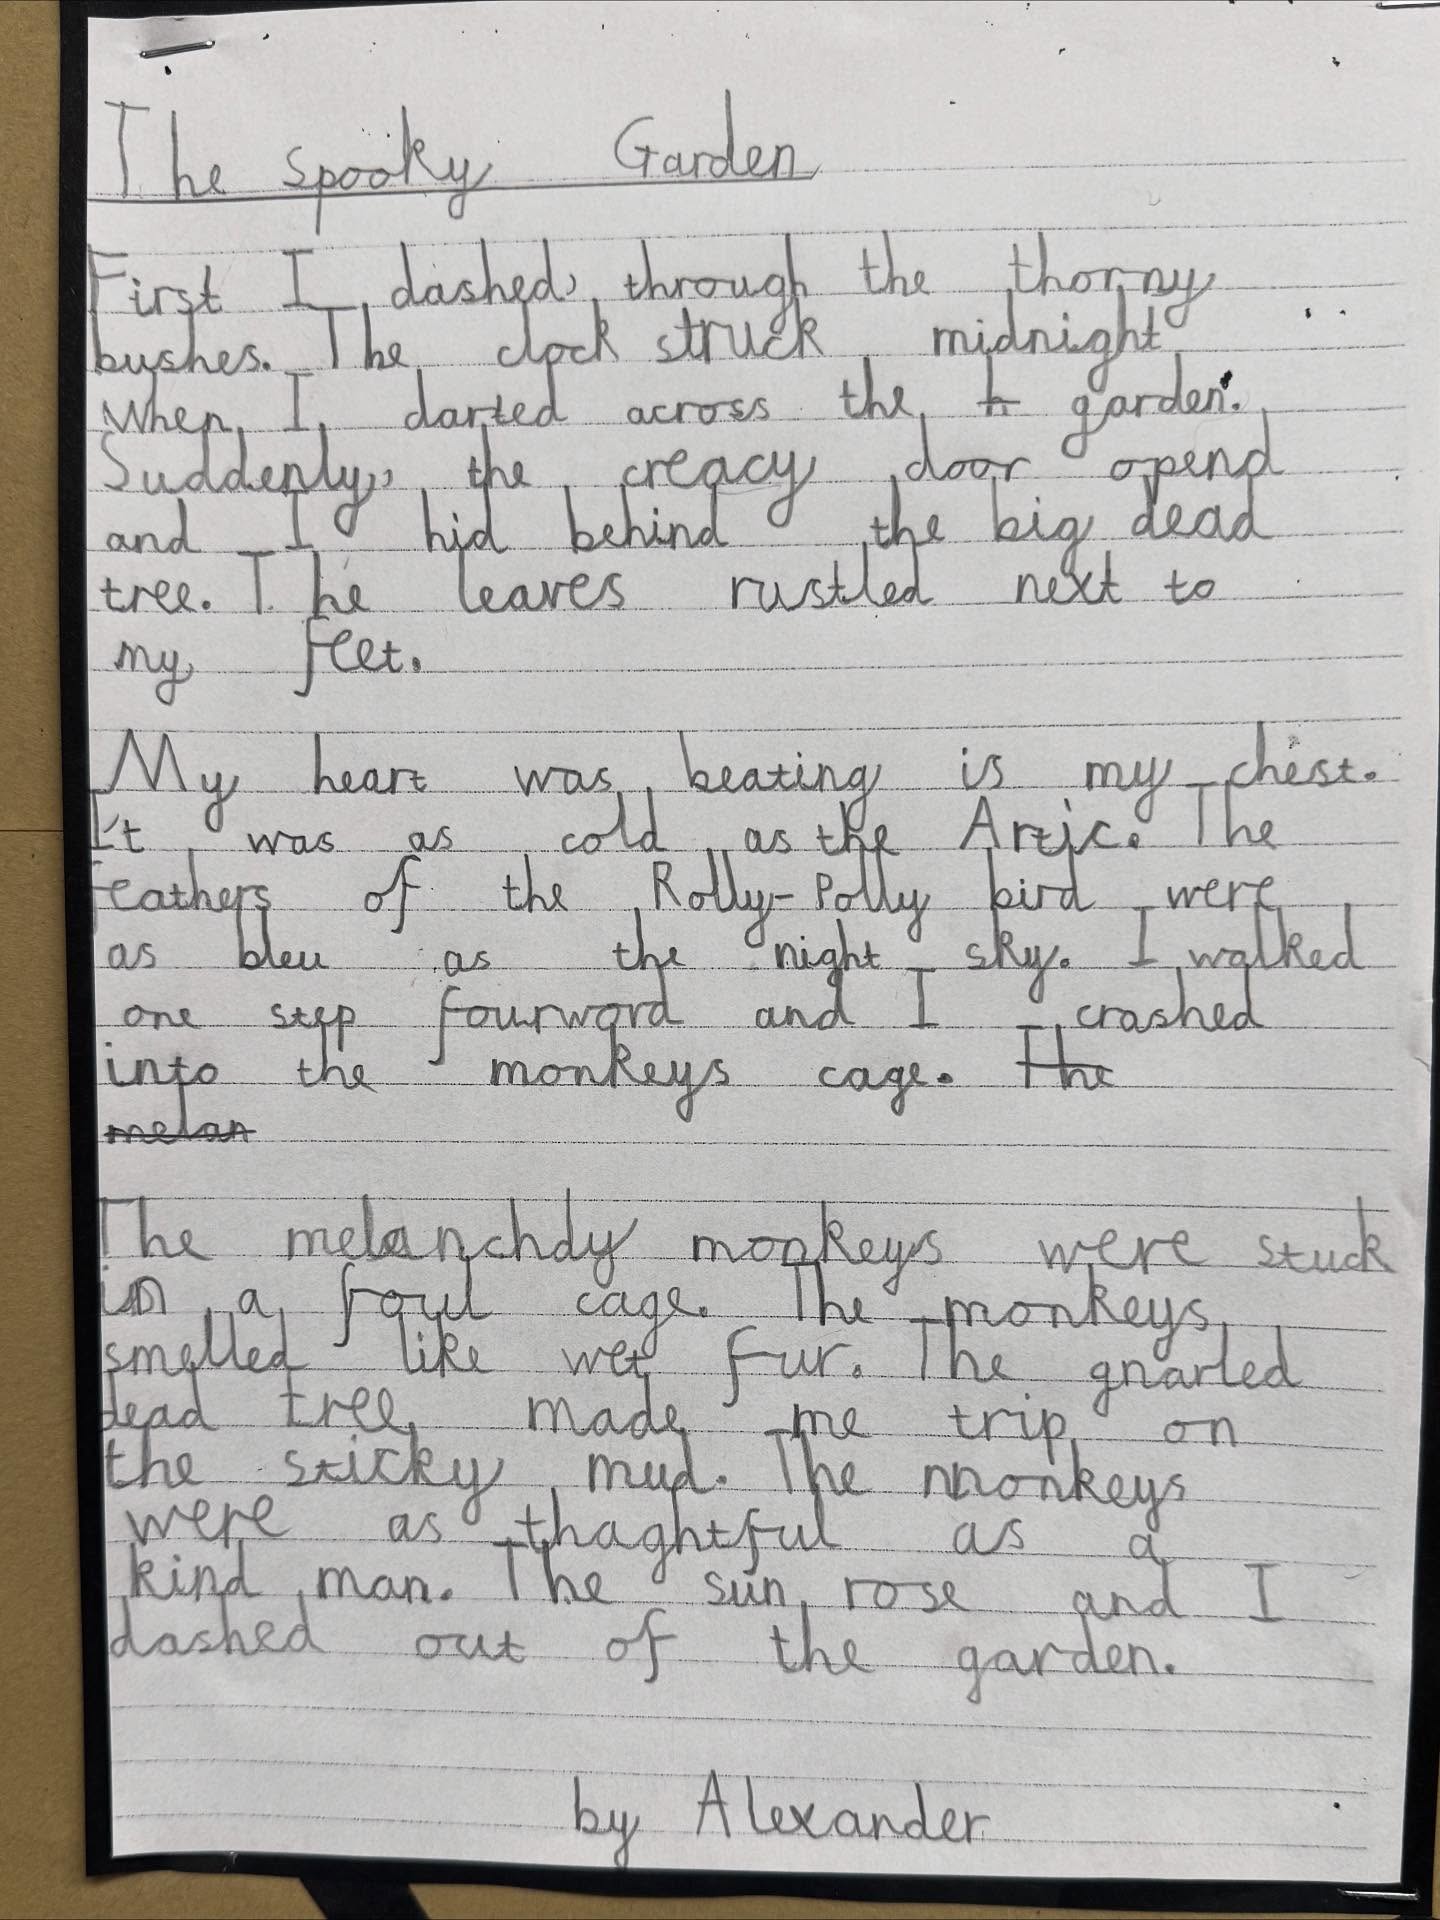 The spooky Garden
First I dashed, through the thorny
bushes. The clock struck midnight
when I darted across the garden.
Suddenly, the creacy door opend
and I hid behind the big dead
tree. The leaves rustled next to
my feet.
My heart was beating is my chest.
It was as cold as the Artic. The
feathers of the Rolly-Polly bird were
as bleu as the night sky. I walked
one step fourword and I crashed
into the monkeys cage. The
melan
The melancholy monkeys were stuck
in a foul cage. The monkeys
smelled like wet fur. The gnarled
dead tree made me trip on
the sticky mud. The monkeys
were as thaghtful as a
kind man. The sun rose and I
dashed out of the garden.
by Alexander